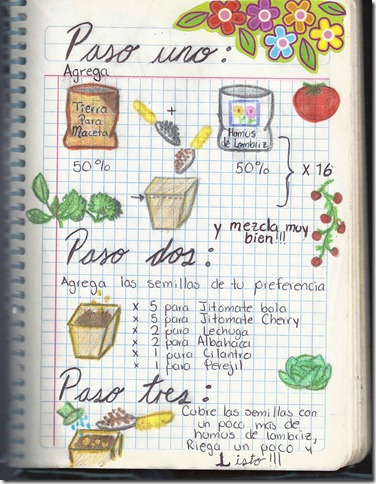 Paso uno:
Agrega
Tierra
Para
Maceta
+
Humus
de Lombriz
50%
50%
X 16
y mezcla muy
bien!!!
Paso dos:
Agrega las semillas de tu preferencia
x 5 para Jitomate bola
x 5 para Jitomate Cherry
x 2 para Lechuga
x 2 para Albahaca
x 1 para Cilantro
x 1 para Perejil
Paso tres:
Cubre las semillas con
un poco mas de
humus de lombriz,
Riega un poco y
Listo!!!